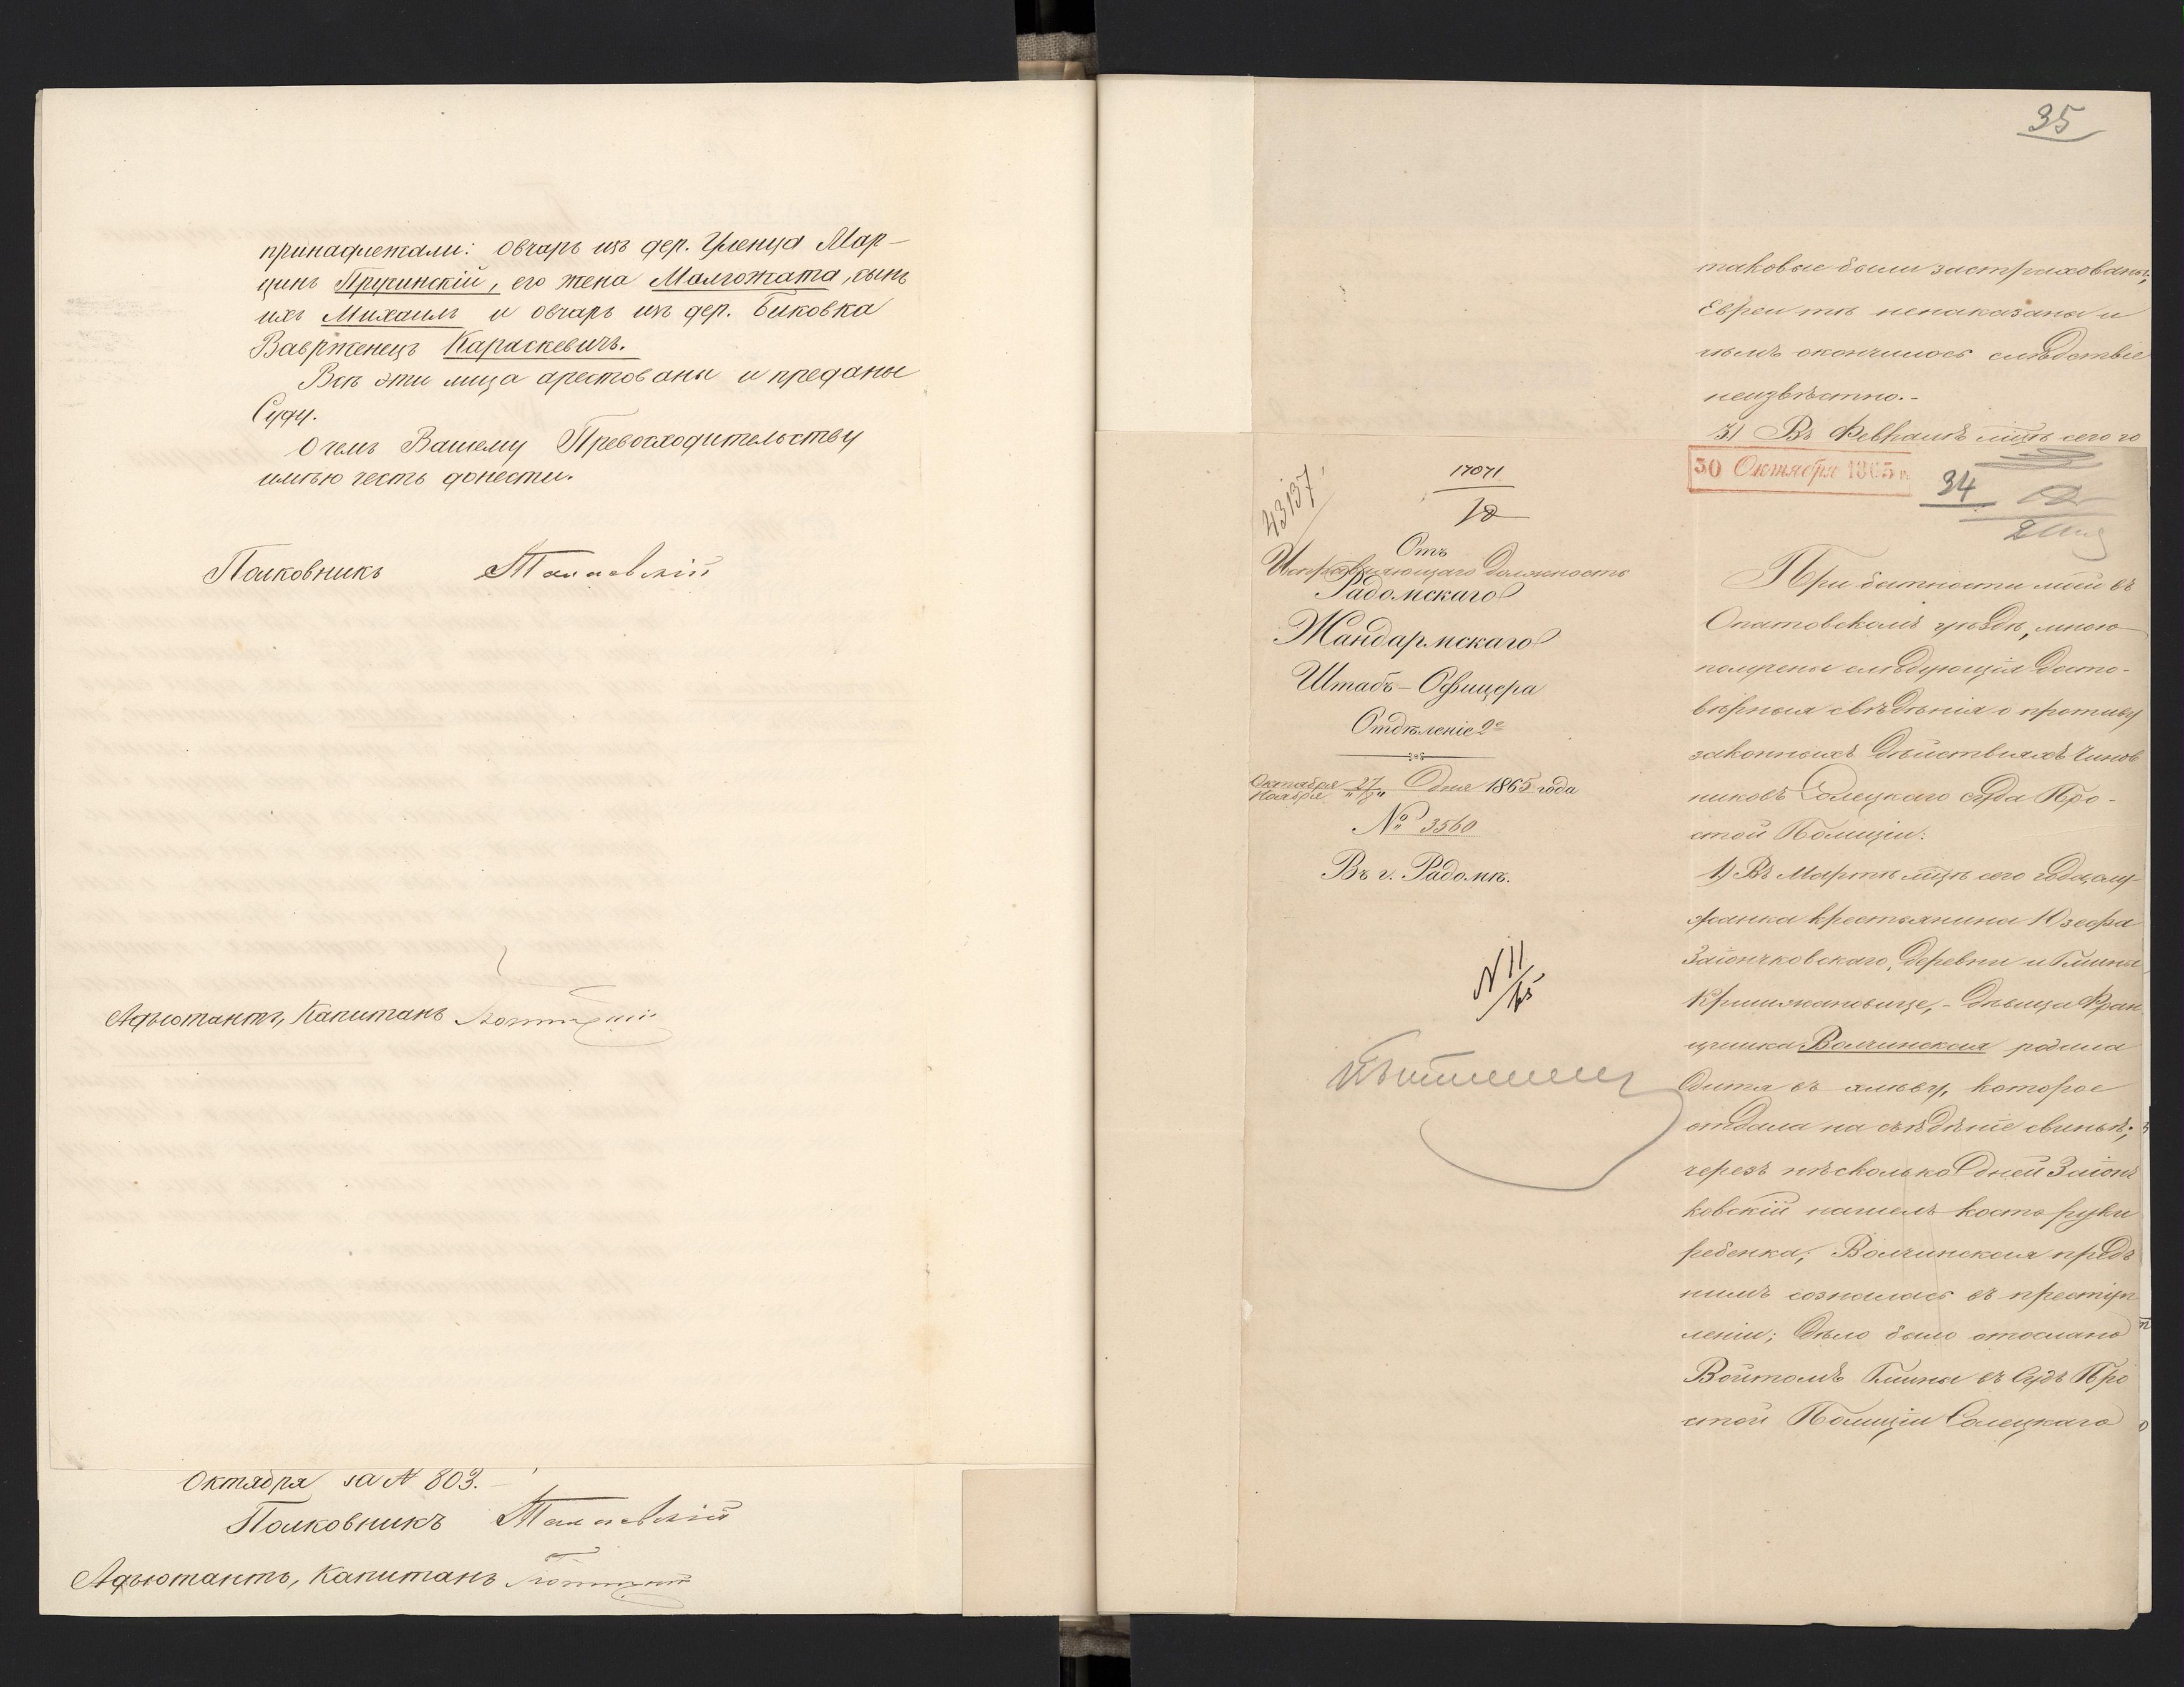 принадлежали: овчаръ изъ дер. Уленца Мар-
цинъ Пружинскій, его жена Малгожата, сынъ
ихъ Михаилъ и овчаръ изъ дер. Биковка
Ваврженецъ Караскевичъ.
Всѣ эти лица арестованы и преданы
Суду.
О чемъ Вашему Превосходительству
имѣю честь донести.
Полковникъ
Адъютантъ, Капитанъ
Октября за № 803.
Полковникъ
Адъютантъ, Капитанъ
35
таковые были застрахованы;
Евреи тѣ ненаказаны и
чѣмъ окончилось слѣдствіе
неизвѣстно.-
3) Въ Февралѣ мцѣ сего го
30 Октября 1865 г.
34
43137
17071
Отъ
Исправляющаго Должность
Радомскаго
Жандармскаго
Штабъ-Офицера
Отдѣленіе 2е
Октября 27 Дня 1865 года
Ноября „8"
№ 3560
Въ г. Радомѣ.
N 11
При бытности моей въ
Опатовскомъ уѣздѣ, мною
получены слѣдующія досто-
вѣрныя свѣдѣнія о противу
законныхъ дѣйствіяхъ Чинов
никовъ Солецкаго суда Про-
стой Полиціи:
1) Въ Мартѣ мцѣ сего года, слу-
жанка крестьянина Юзефа
Заіончковскаго, деревни и Гмины
- дѣвица Фран
цишка Волчинская родила
дитя въ хлѣву, которое
отдала на съѣденіе свиньѣ;
черезъ нѣсколько дней Заіонч
ковскій нашелъ кость руки
ребенка; Волчинская предъ
нимъ созналась въ преступ
леніи; дѣло было отослано
Войтомъ Гмины въ Судъ Про
стой Полиціи Солецкаго